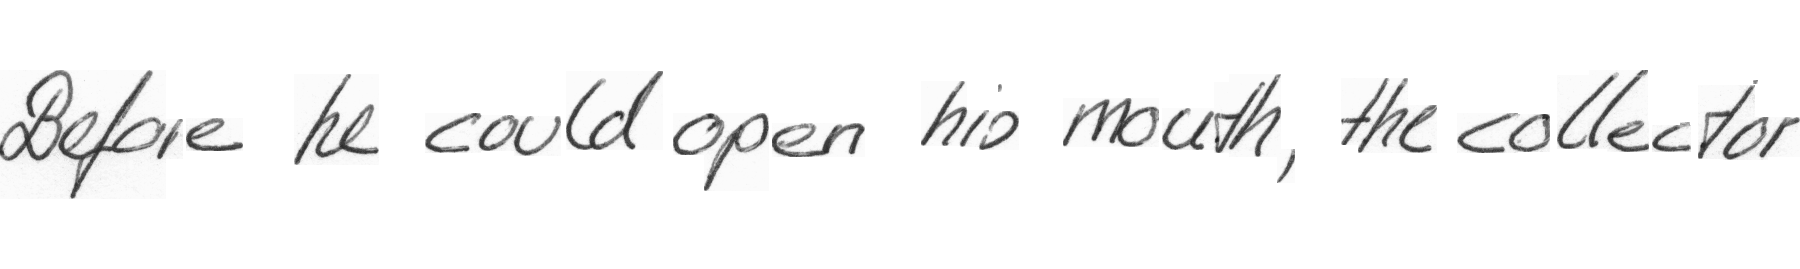 Before he could open his mouth, the collector